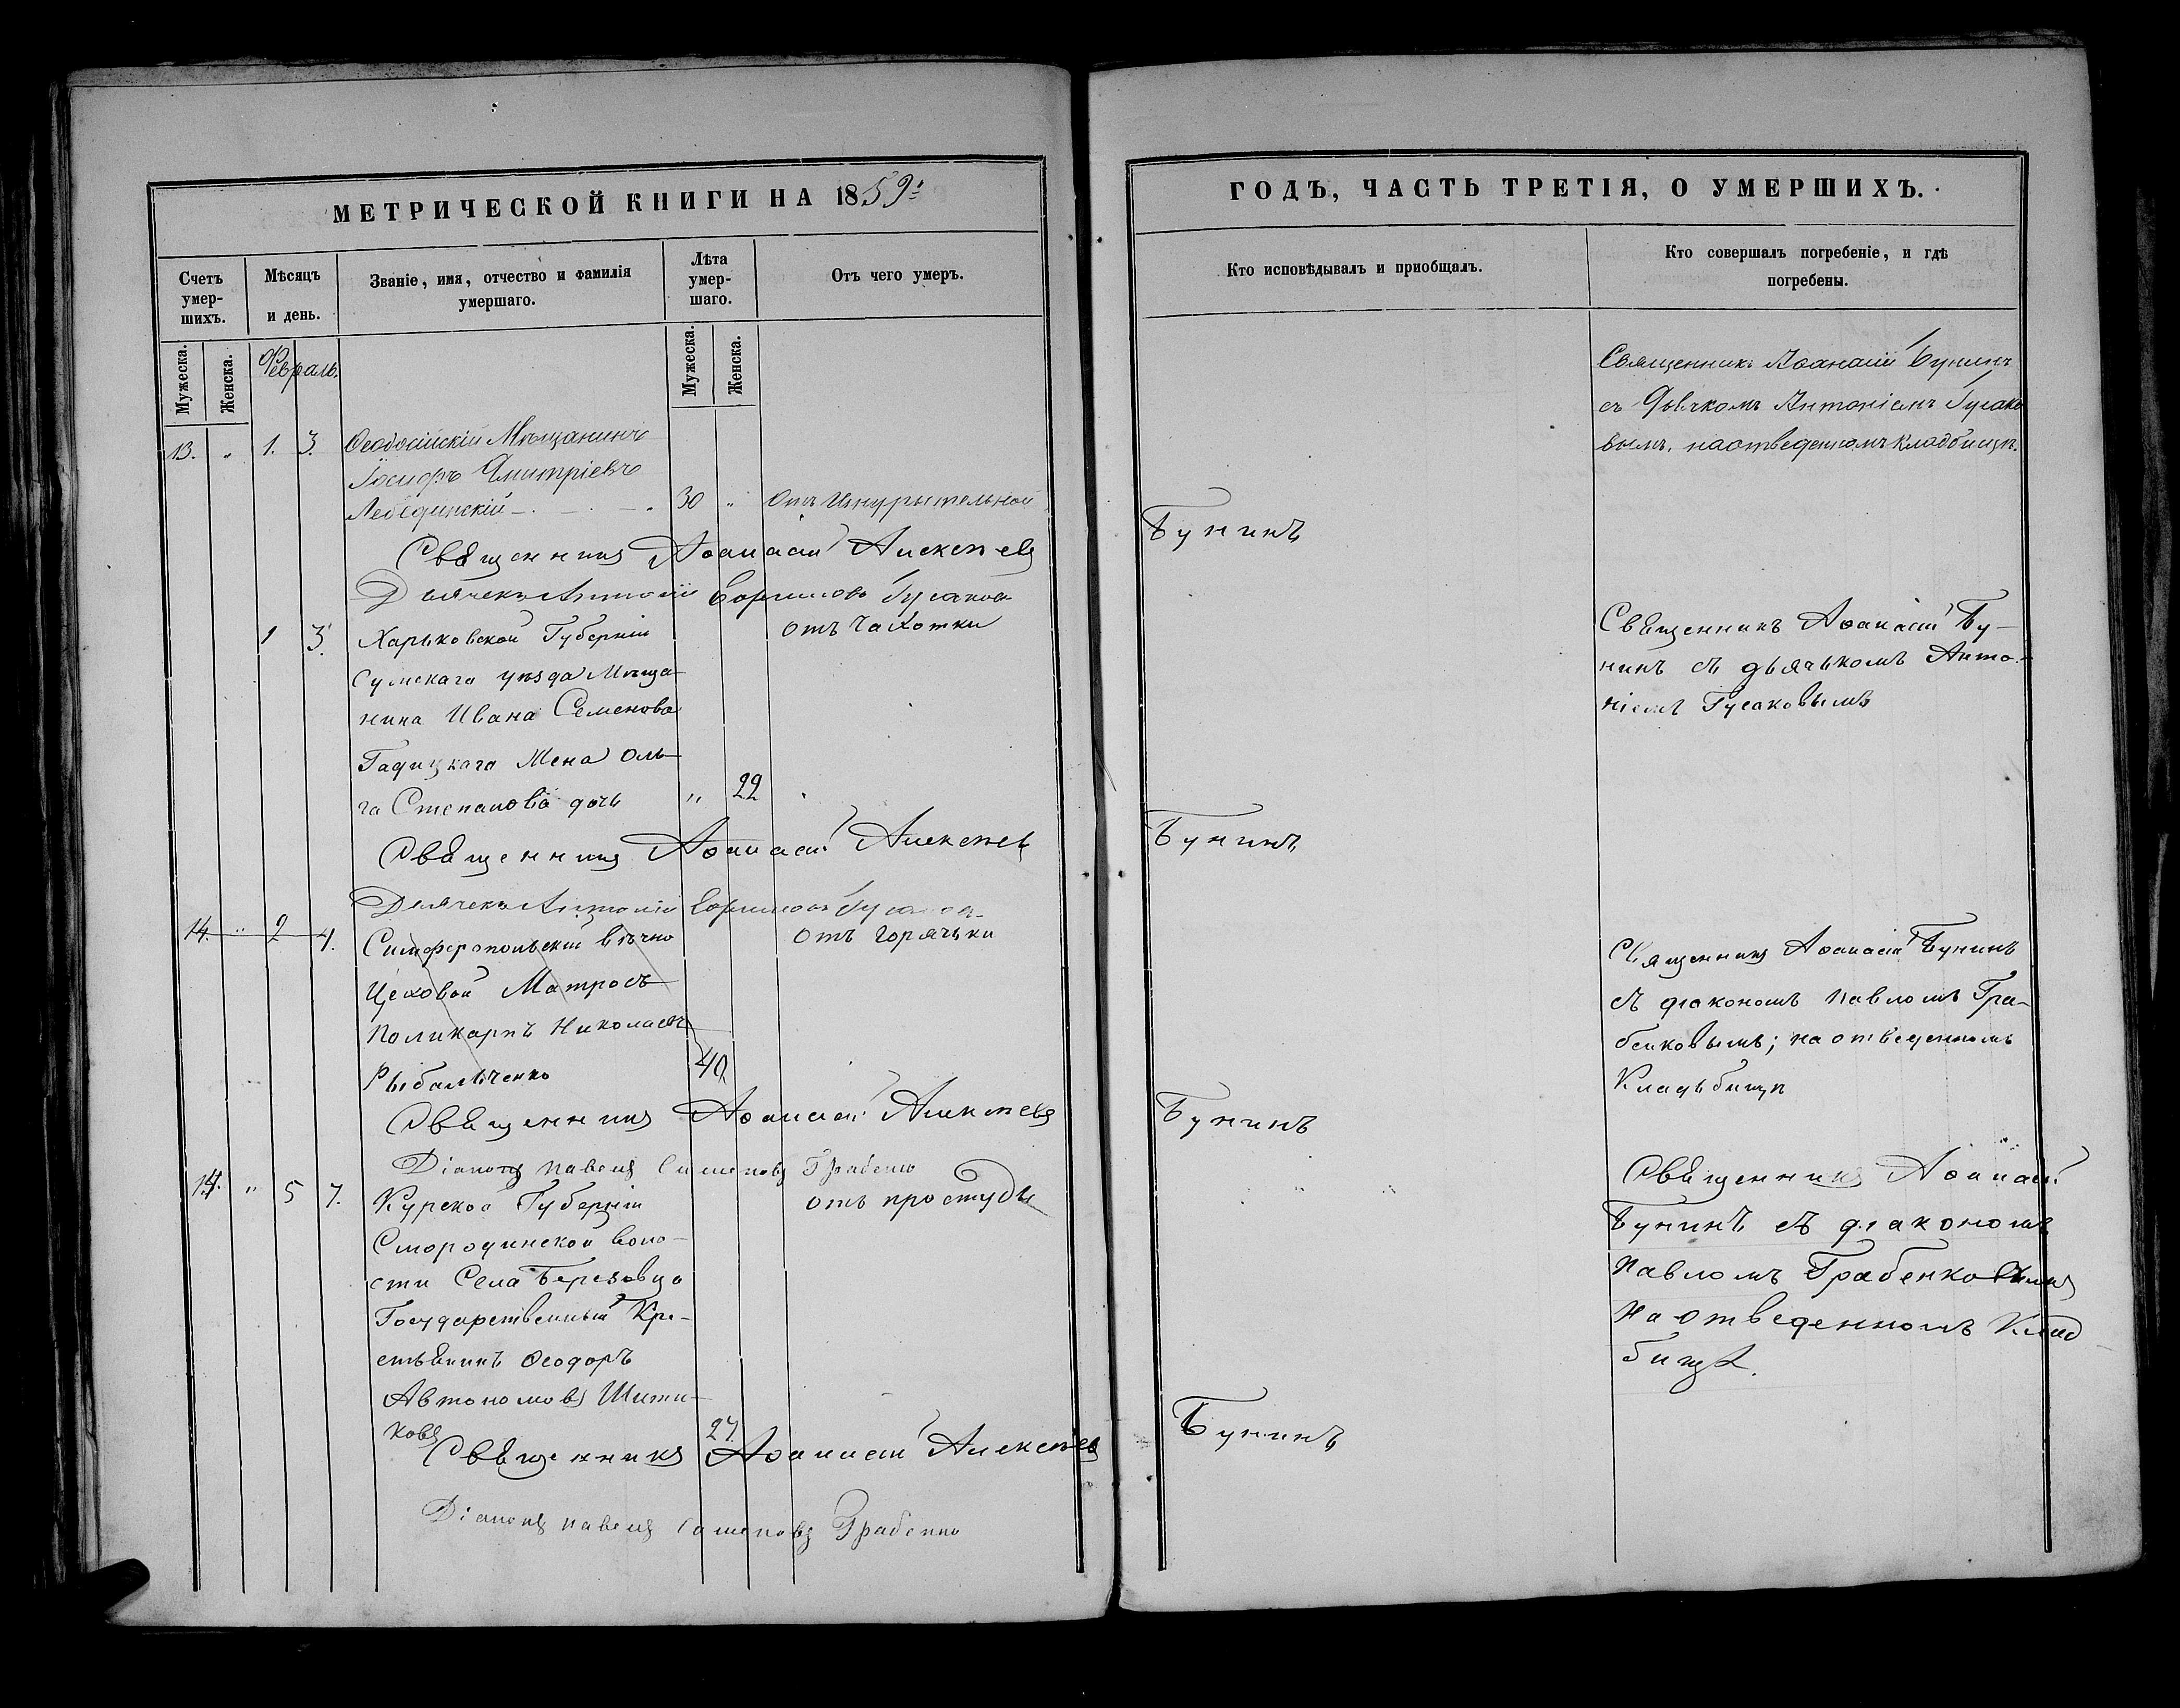 МЕТРИЧЕСКОЙ КНИГИ НА 1859:
Счетъ умершихъ.
Мѣсяцъ и день.
Званіе, имя, отчество и фамилія умершаго.
Лѣта умершаго.
Отъ чего умеръ.
Мужеска.
Женска.
Февраль.
Мужеска.
Женска.
13. „ 1. 3. Ѳеодосійскій Мѣщанинъ
Іосифъ Дмитріевъ
Лебединскій 30 „ Отъ
Священникъ Аѳанасій Алексѣевъ
Дьячекъ Антоній Гусаков
1 3. Харьковской Губерніи отъ Чахотки
Сумскаго уѣзда Мѣща-
нина Ивана Семенова
Гадицкаго Жена Оль-
га Степанова дочь „ 22
Священникъ Аѳанасій Алексѣевъ
Дьячекъ Антоній
14. „ 2 4. Симферопольскій вѣчно отъ горячьки
Цеховой Матросъ
Поликарпъ Николаевъ
Рыбальченко 40
Священникъ Аѳанасій Алексѣевъ
Діаконъ Павелъ Грабенко
14. „ 5 7. Курской Губерніи отъ простуды
Смородинской воло-
сти Села Березовца
Государственный Кре-
стьянинъ Ѳеодоръ
Автономовъ Шити-
ковъ 27.
Священникъ Аѳанасій Алексѣевъ
Діаконъ Павелъ Грабенко
ГОДЪ, ЧАСТЬ ТРЕТІЯ, О УМЕРШИХЪ.
Кто исповѣдывалъ и приобщалъ.
Кто совершалъ погребеніе, и гдѣ
погребены.
Священникъ Аѳанасій Бунинъ
съ Дьячкомъ Антоніемъ Гусако
вымъ, на отведенномъ кладбищѣ.
Бунинъ
Священникъ Аѳанасій Бу-
нинъ съ дьячькомъ Анто-
ніемъ Гусаковымъ
Бунинъ
Священникъ Аѳанасій Бунинъ
съ діакономъ Павломъ Гра-
бенковымъ; на отведенномъ
Кладьбищѣ
Бунинъ
Священникъ Аѳанасій
Бунинъ съ діакономъ
Павломъ Грабенковымъ
на отведенномъ Клад
бищѣ.
Бунинъ